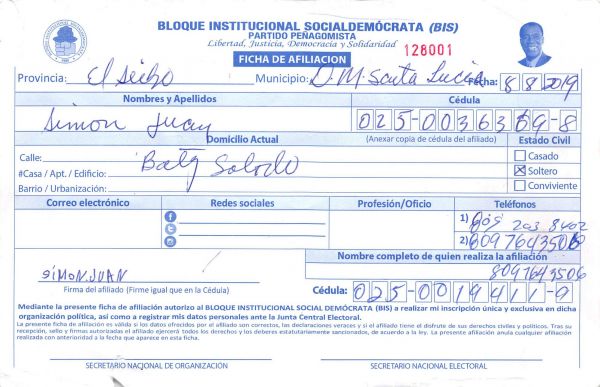 BLOQUE INSTITUCIONAL SOCIALDEMÓCRATA (BIS)
PARTIDO PEÑAGOMISTA
Libertad, Justicia, Democracia y Solidaridad
128001
FICHA DE AFILIACION
Provincia: El Seibo Municipio: D.M. Santa Lucia Fecha: 8 8 2019
Nombres y Apellidos Cédula
Simon Juan 025-0036369-8
Domicilio Actual (Anexar copia de cédula del afiliado) Estado Civil
Calle: Batey
Casado
#Casa / Apt. / Edificio: Soltero
Barrio / Urbanización: Conviviente
Correo electrónico Redes sociales Profesión/Oficio Teléfonos
1) 203 8402
2) 8097643506
Nombre completo de quien realiza la afiliación
8097643506
SIMON.JUAN
Firma del afiliado (Firme igual que en la Cédula) Cédula: 025-0019411-9
Mediante la presente ficha de afiliación autorizo al BLOQUE INSTITUCIONAL SOCIAL DEMÓCRATA (BIS) a realizar mi inscripción única y exclusiva en dicha
organización política, así como a registrar mis datos personales ante la Junta Central Electoral.
La presente ficha de afiliación es válida si los datos ofrecidos por el afiliado son correctos, las declaraciones veraces y si el afiliado tiene el disfrute de sus derechos civiles y políticos. Tras su
recepción, sello y firmas autorizadas el afiliado ejercerá todos los derechos y los deberes estatutariamente sancionados, de acuerdo a la ley. La presente afiliación anula cualquier afiliación
realizada con anterioridad a la fecha que aparece en esta ficha.
SECRETARIO NACIONAL DE ORGANIZACIÓN SECRETARIO NACIONAL ELECTORAL